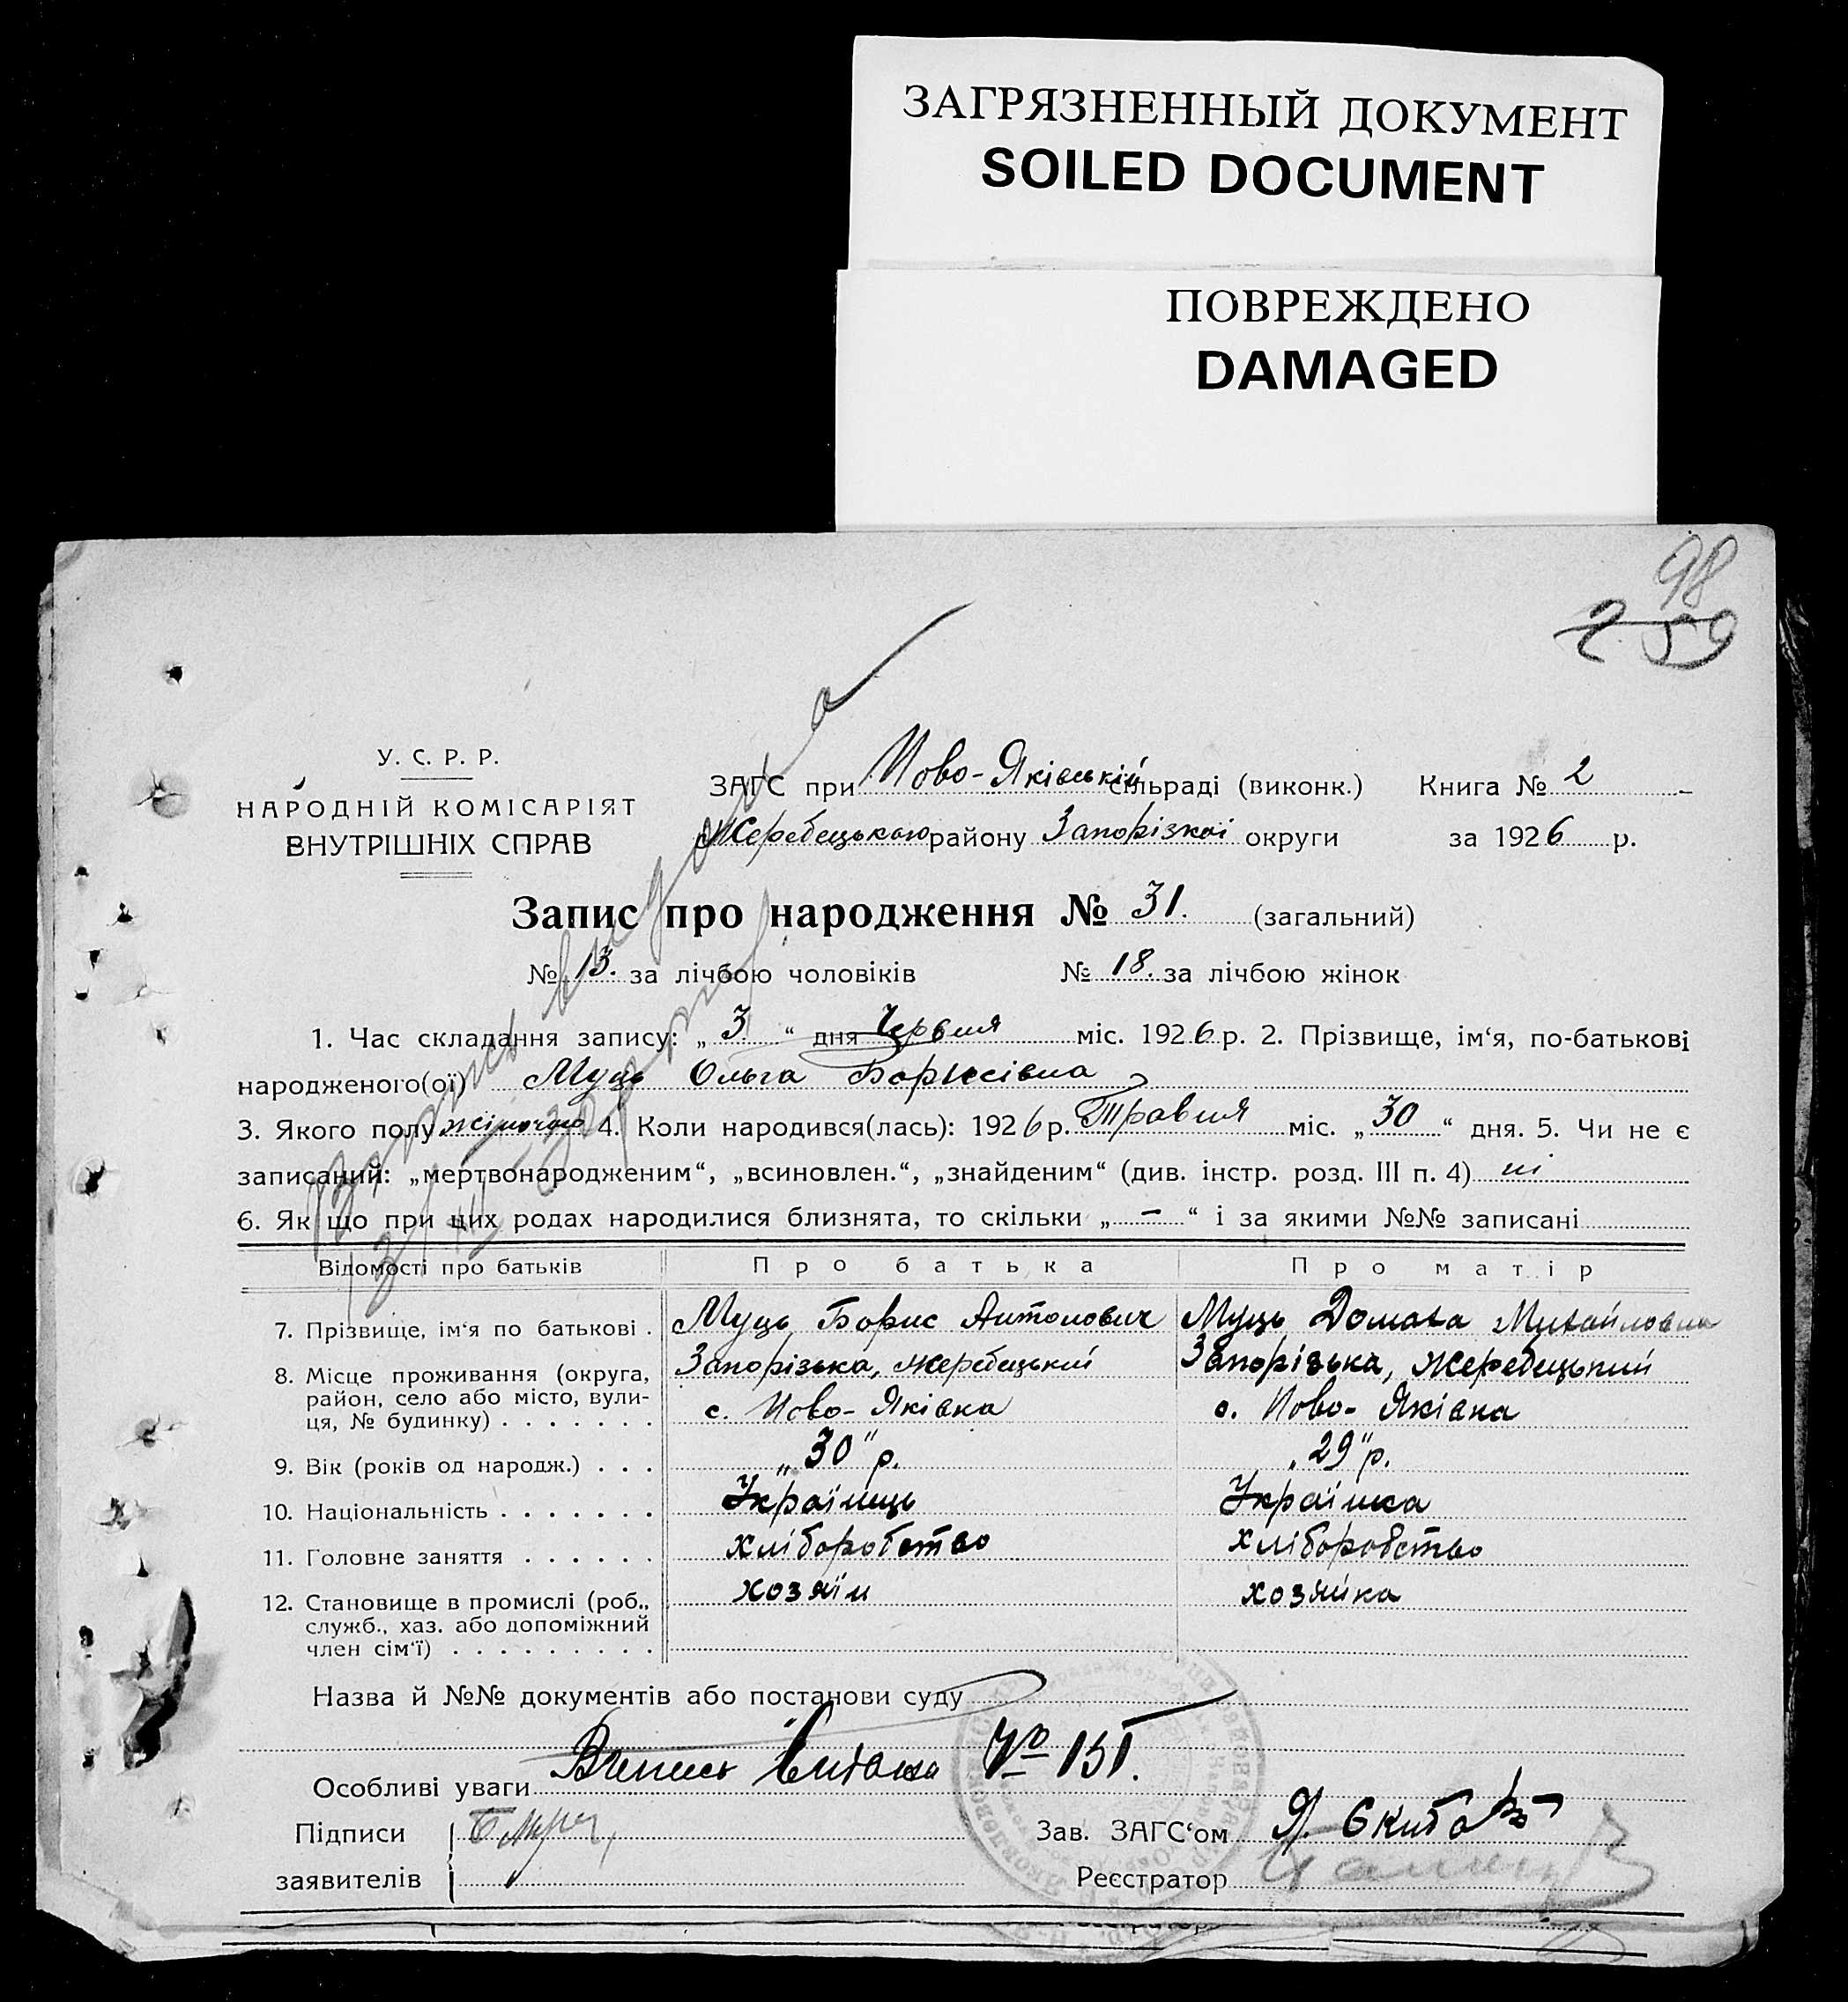 ЗАГРЯЗНЕННЫЙ ДОКУМЕНТ
SOILED DOCUMENT
ПОВРЕЖДЕНО
DAMAGED
98
259
У. С. Р. Р.
НАРОДНІЙ КОМІСАРІЯТ
ВНУТРІШНІХ СПРАВ
ЗАГС при Ново-Яківській сільраді (виконк.) Книга № 2
Жеребецького району Запорізкої округи за 1926 р.
Запис про народження № 31. (загальний)
№ 13. за лічбою чоловіків № 18. за лічбою жінок
1. Час складання запису: „ 3 “ дня Червня міс. 1926 р. 2. Прізвище, ім‘я, по-батькові
народженого(ої) Муць Ольга Борисівна
3. Якого полу жіночого 4. Коли народився(лась): 1926 р. Травня міс. „ 30 “ дня. 5. Чи не є
записаний: „мертвонародженим“, „всиновлен.“, „знайденим“ (див. інстр. розд. III п. 4) ні
6. Як що при цих родах народилися близнята, то скільки „ — “ і за якими №№ записані
Відомості про батьків Про батька Про матір
7. Прізвище, ім‘я по батькові . Муць Борис Антонович Муць Домаха Михайловна
8. Місце проживання (округа, район, село або місто, вулиця, № будинку) . . . . . . . Запорізька, Жеребецький Запорізька, Жеребецький
с. Ново-Яківка с. Ново-Яківка
9. Вік (років од народж.) . . . „30“ р. „29“ р.
10. Національність . . . . . . . Українць Українка
11. Головне заняття . . . . . . хліборобство хліборобство
12. Становище в промислі (роб., служб., хаз. або допоміжний член сім‘ї) . . . . . . . . . хозяїн хозяйка
Назва й №№ документів або постанови суду
Особливі уваги Випись видана № 151.
Підписи
заявителів
Зав. ЗАГС‘ом
Реєстратор